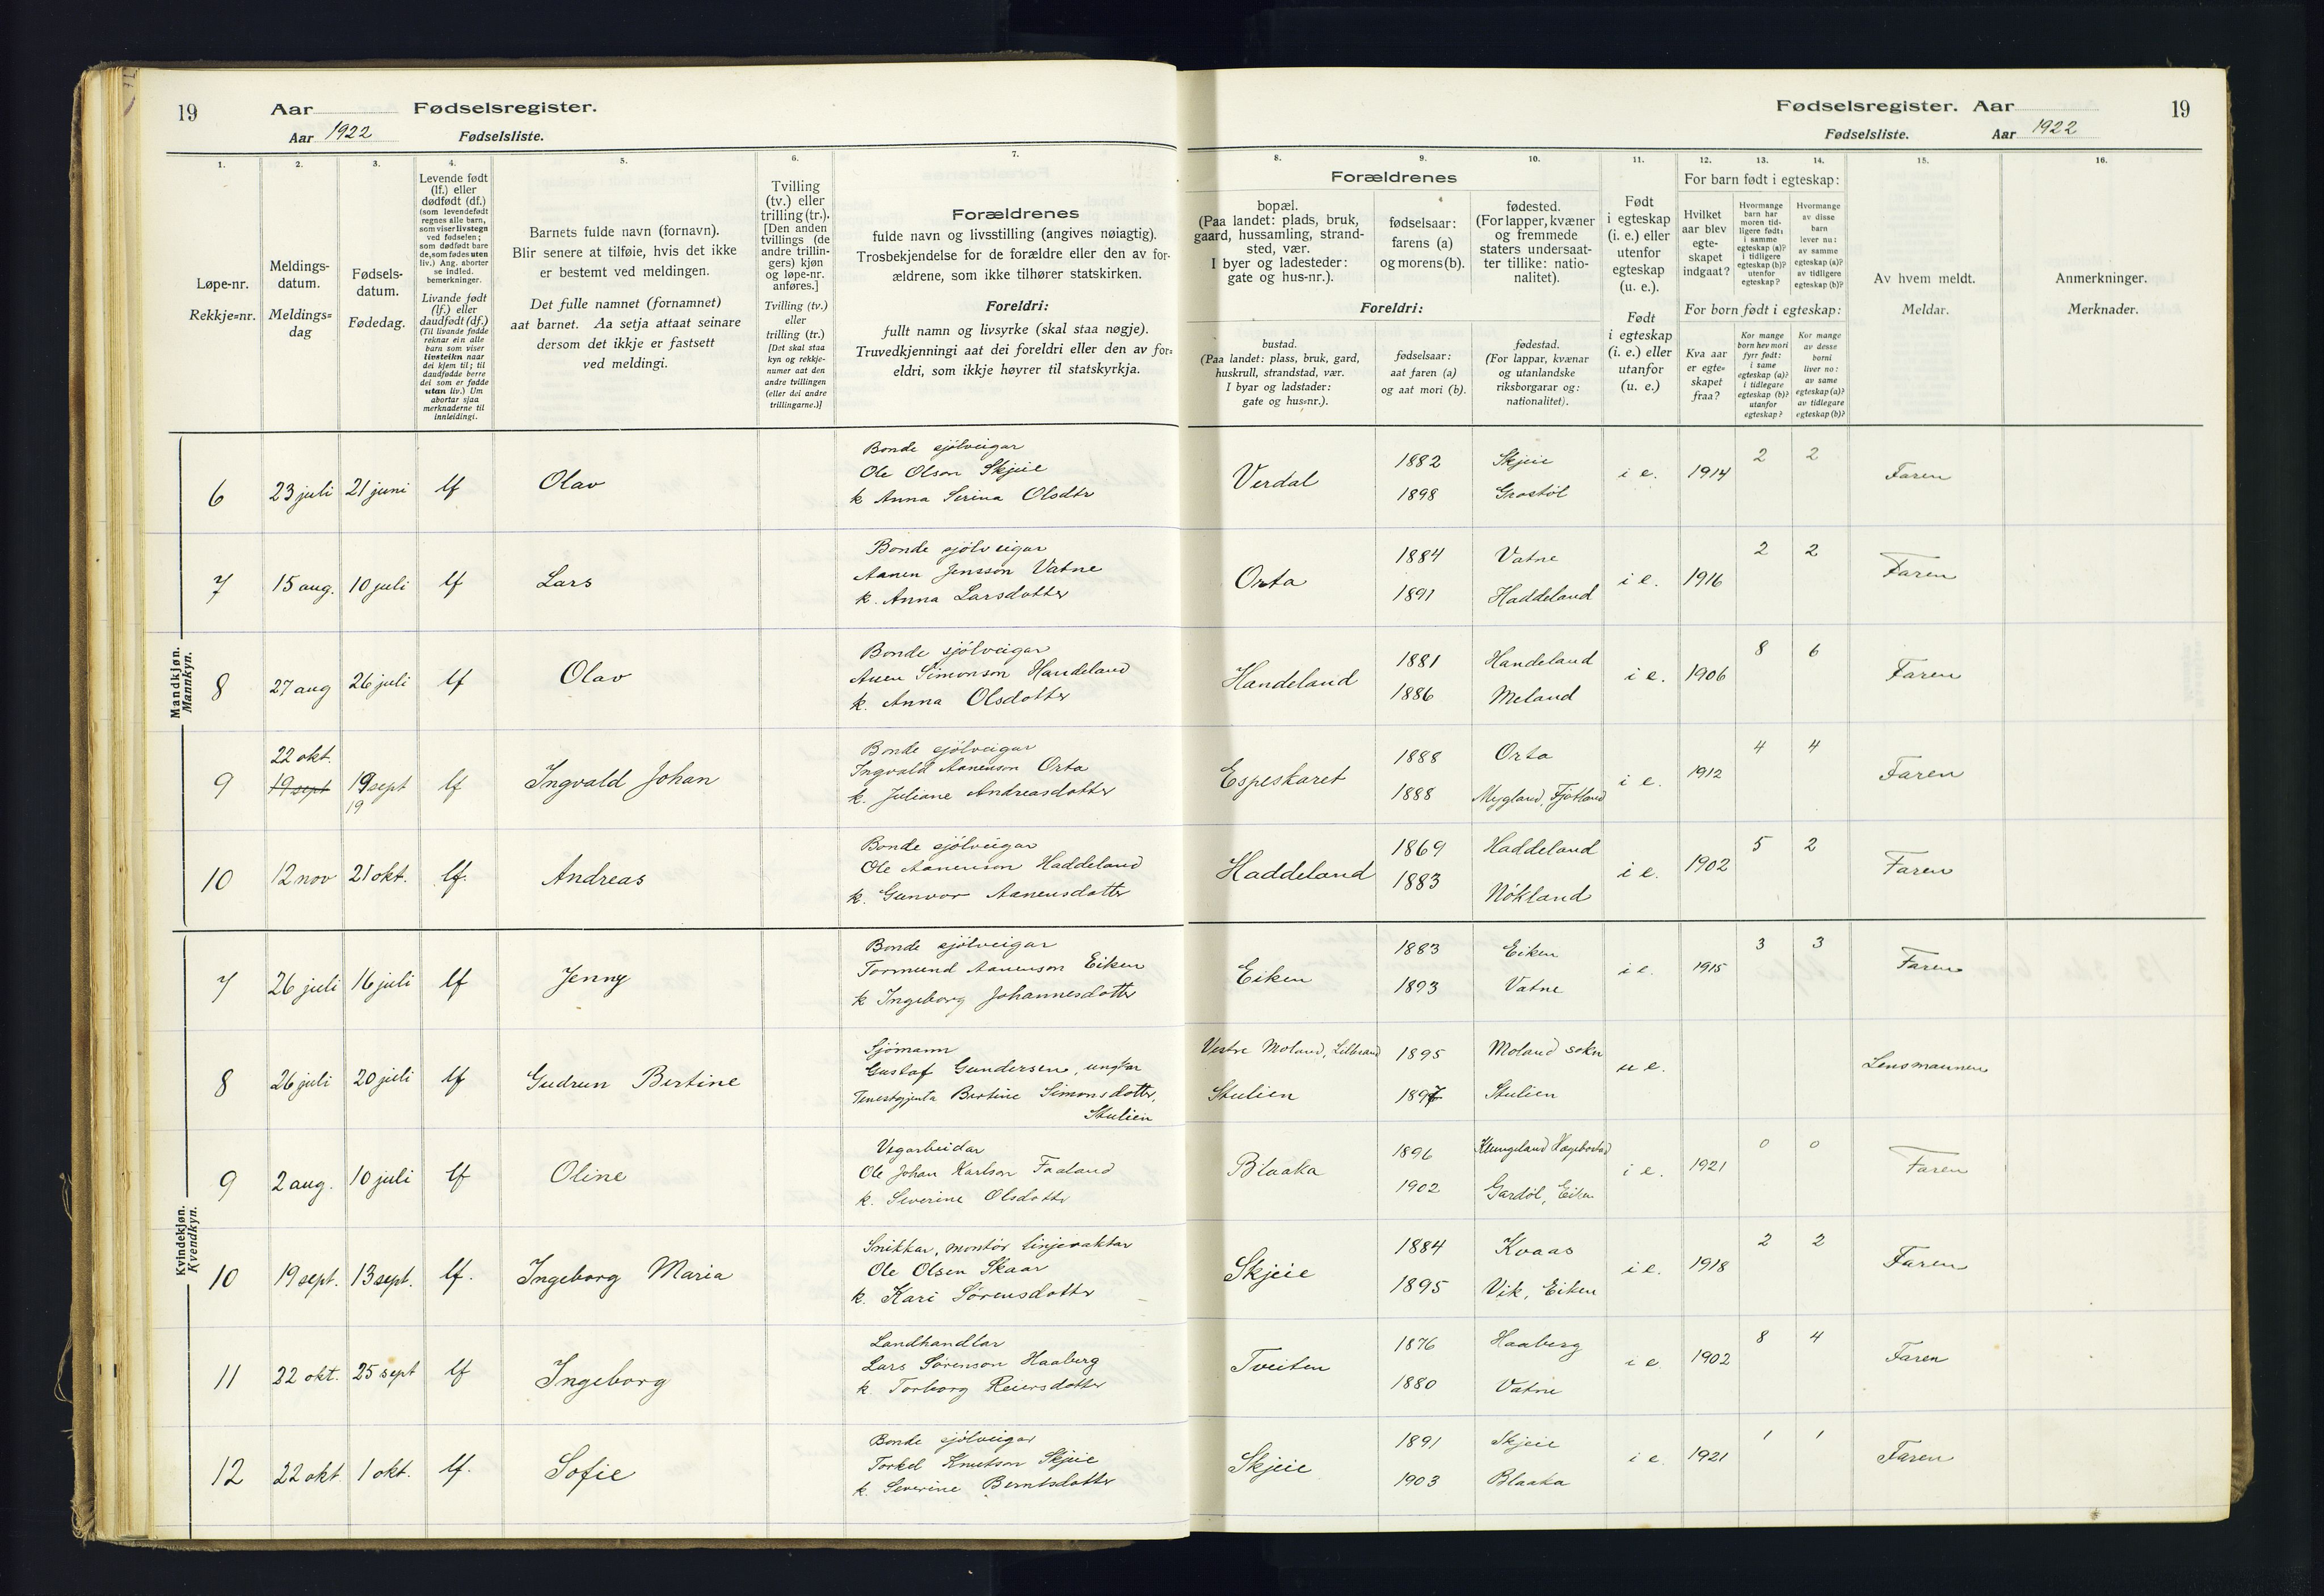 19 Aar Fødselsregister.
Aar 1922 Fødselsliste.
Fødselsregister. Aar 19
Fødselsliste. Aar 1922
1.
Løpe-nr.
Rekkje=nr.
2.
Meldings-
datum.
Meldings=
dag
3.
Fødsels-
datum.
Fødedag.
4.
Levende født
(lf.) eller
dødfødt (df.)
(som levendefødt
regnes alle barn,
som viser livstegn
ved fødselen;
som dødfødt bare
de, som fødes uten
liv.) Ang. aborter
se indled.
bemerkninger.
Livande født
(lf.) eller
daudfødt (df.)
(Til livande fødde
reknar ein alle
barn som viser
livsteikn naar
dei kjem til; til
daudfødde berre
dei som er fødde
utan liv.) Um
abortar sjaa
merknaderne til
innleidingi.
5.
Barnets fulde navn (fornavn).
Blir senere at tilføie, hvis det ikke
er bestemt ved meldingen.
Det fulle namnet (fornamnet)
aat barnet. Aa setja attaat seinare
dersom det ikkje er fastsett
ved meldingi.
6.
Tvilling
(tv.) eller
trilling (tr.).
[Den anden
tvillings (de
andre trillin-
gers) kjøn
og løpe-nr.
anføres.]
Tvilling (tv.)
eller
trilling (tr.)
[Det skal staa
kyn og rekkje-
numer aat den
andre tvillingen
(eller dei andre
trillingarne.)]
7.
Forældrenes
fulde navn og livsstilling (angives nøiagtig).
Trosbekjendelse for de forældre eller den av for-
ældrene, som ikke tilhører statskirken.
Foreldri:
fullt namn og livsyrke (skal staa nøgje).
Truvedkjenningi aat dei foreldri eller den av for=
eldri, som ikkje høyrer til statskyrkja.
Forældrenes
8.
bopæl.
(Paa landet: plads, bruk,
gaard, hussamling, strand-
sted, vær.
I byer og ladesteder:
gate og hus-nr.).
Foreldri:
bustad.
(Paa landet: plass, bruk, gard,
huskrull, strandstad, vær.
I byar og ladstader:
gate og hus=nr.).
9.
fødselsaar:
farens (a)
og morens (b).
fødselsaar:
aat faren (a)
og aat mori (b).
10.
fødested.
(For lapper, kvæner
og fremmede
staters undersaat-
ter tillike: natio-
nalitet).
fødestad.
(For lappar, kvænar
og utanlandske
riksborgarar og:
nationalitet).
11.
Født
i egteskap
(i. e.) eller
utenfor
egteskap
(u. e.).
Født
i egteskap
(i. e.) eller
utanfor
(u. e.)
For barn født i egteskap:
12.
Hvilket
aar blev
egte-
skapet
indgaat?
For born født i egteskap:
Kva aar
er egte=
skapet
fraa?
13.
Hvormange
barn har
moren tid-
ligere født:
i samme
egteskap (a)?
i tidligere
egteskap (b)?
utenfor
egteskap?
Kor mange
born hev mori
fyrr født:
i same
egteskap (a)?
i tidlegare
egteskap (b)?
utanfor
egteskap?
14.
Hvormange
av disse
barn
lever nu:
av samme
egteskap (a)?
av tidligere
egteskap (b)?
Kor mange
av desse
borni
liver no:
av same
egteskap (a)?
av tidlegare
egteskap (b)?
15.
Av hvem meldt.
Meldar.
16.
Anmerkninger.
Merknader.
Mandkjøn.
Mannkyn.
Bonde sjölveigar
Ole Olson Skjeie
6 23 juli 21 juni lf Olav k Anna Serina Olsdtr Verdal 1882 1898 Skjeie Grostöl i e. 1914 2 2 Faren
Bonde sjölveigar
Aanen Jensson Vatne
7 15 aug. 10 juli lf Lars k. Anna Larsdotter Orta 1884 1891 Vatne Haddeland i e. 1916 2 2 Faren
Bonde sjölveigar
Anen Simonson Handeland
8 27 aug 26 juli lf Olav k. Anna Olsdotter Handeland 1881 1886 Handeland Meland i e. 1906 8 6 Faren
22 okt.
Bonde sjölveigar
Ingvald Aanenson Orta
9 19 sept 19 sept 19 lf Ingvald Johan k. Juliane Andreasdotter Espeskaret 1888 1888 Orta Mygland, Fjotland i e. 1912 4 4 Faren
Bonde sjölveigar
Ole Aanenson Haddeland
10 12 nov 21 okt. lf. Andreas k. Gunvor Aanensdotter Haddeland 1869 1883 Haddeland Nökland i e. 1902 5 2 Faren
Kvindekjøn.
Kvendkyn.
Bonde sjölveigar
Tormund Aanenson Eiken
7 26 juli 16 juli lf Jenny k Ingeborg Johannesdotter Eiken 1883 1893 Eiken Vatne i e. 1915 3 3 Faren
Sjömann
Gustaf Gundersen, ungkar
8 26 juli 20 juli lf Gudrun Bertine Tenestgjenta Bertine Simonsdotter, Stulien Vestre Moland, Stulien 1895 1897 Moland sokn Stulien u e. Lensmannen
Vegarbeidar
Ole Johan Karlson Faaland
9 2 aug. 10 juli lf Oline k. Severine Olsdotter Blaaka 1896 1902 Klungeland Hægebostad Gardöl, Eiken i e. 1921 0 0 Faren
Snikkar, montör linjevaktar
Ole Olsen Skaar
10 19 sept. 13 sept. lf. Ingeborg Maria k. Kari Sörensdotter Skjeie 1884 1895 Kvaas Vik, Eiken i e. 1918 2 2 Faren
Landhandlar
Lars Sörenson Haaberg
11 22 okt. 25 sept lf Ingeborg k. Torborg Reiersdotter Tveiten 1876 1880 Haaberg Vatne i e 1902 8 4 Faren
Bonde sjölveigar
Torkel Knutson Skjeie
12 22 okt 1 okt. lf. Sofie k. Severine Berntsdotter Skjeie 1891 1903 Skjeie Blaaka i e 1921 1 1 Faren